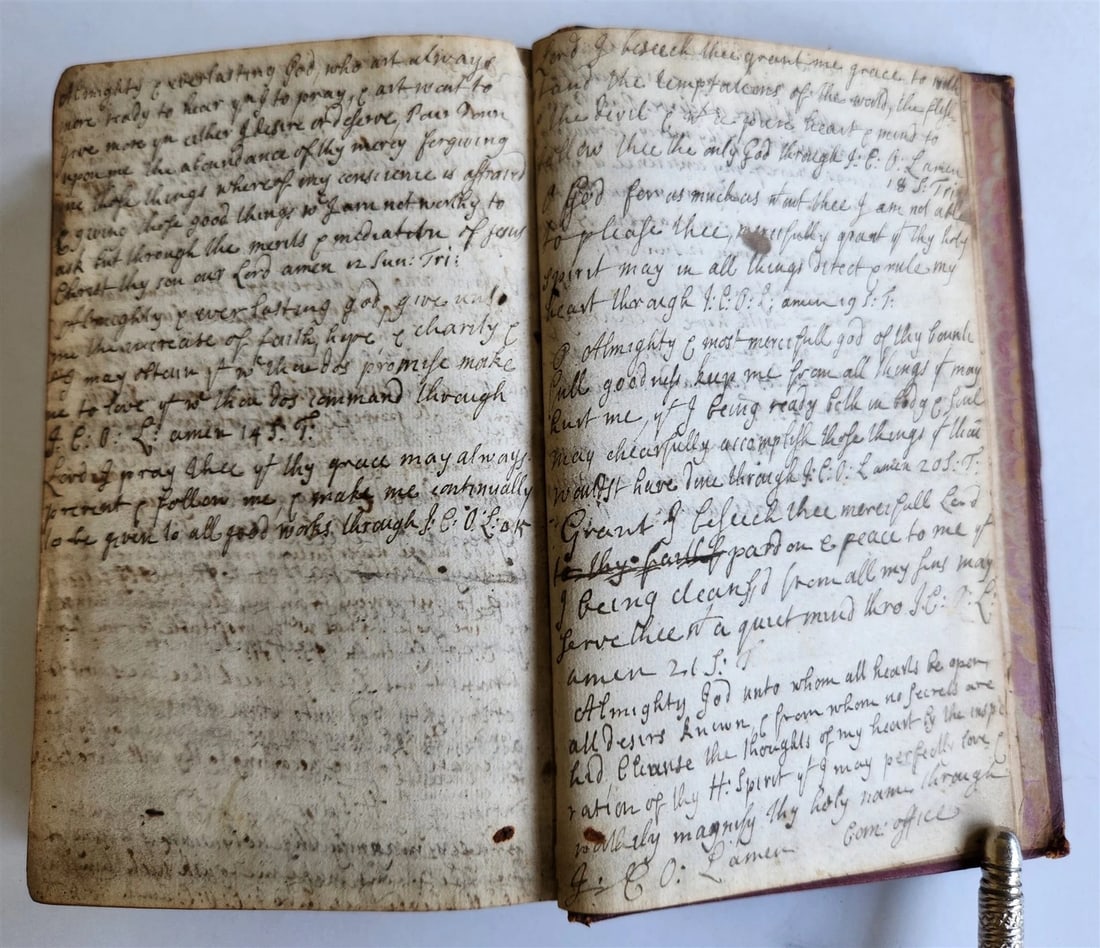 Almighty & everlasting God, who art always
more ready to hear yn I to pray, & art wont to
give more yn either I desire or deserve, Pour down
upon me the abundance of thy mercy forgiving
me those things whereof my conscience is affraid
& giving those good things wch I am not worthy to
ask but through the merits & mediation of Jesus
Christ thy son our Lord amen 12 Sun: Tri:
Almighty & everlasting god, give unto
me the increase of faith, hope, & charity &
yt I may obtein yt wch thou dos promise make
me to love yt wch thou dos command through
J: C: O: L: amen 14 S: T:
Lord I pray thee yt thy grace may always
prevent & follow me, & make me continually
to be given to all good works through J: C: O: L: a
Lord I beseech thee grant me grace to with
stand the temptacions of the world, the flesh
& the devil & wth a pure heart & mind to
follow thee the only God through J: C: O: L amen
18 S: Tri
O God for as much as wtout thee I am not able
to please thee, mercifully grant yt thy holy
spirit may in all things direct & rule my
heart through J: C: O: L: amen 19 S: T:
O Almighty & most mercifull god of thy bounti
full goodness, keep me from all things yt may
hurt me, yt I being ready both in body & soul
may chearfully accomplish those things yt thou
wouldst have done through J: C: O: L amen 20 S: T:
Grant I beseech thee mercifull Lord
to thy faithf pardon & peace to me yt
I being cleansd from all my sins may
serve thee wt a quiet mind thro J: C: O: L:
amen 21 S:
Almighty God unto whom all hearts be open
all desirs known & from whom no secrets are
hid Cleanse the thoughts of my heart by the inspi
ration of thy H: Spirit yt I may perfectly love &
worthily magnify thy holy name through
J: C O: L amen Com: office